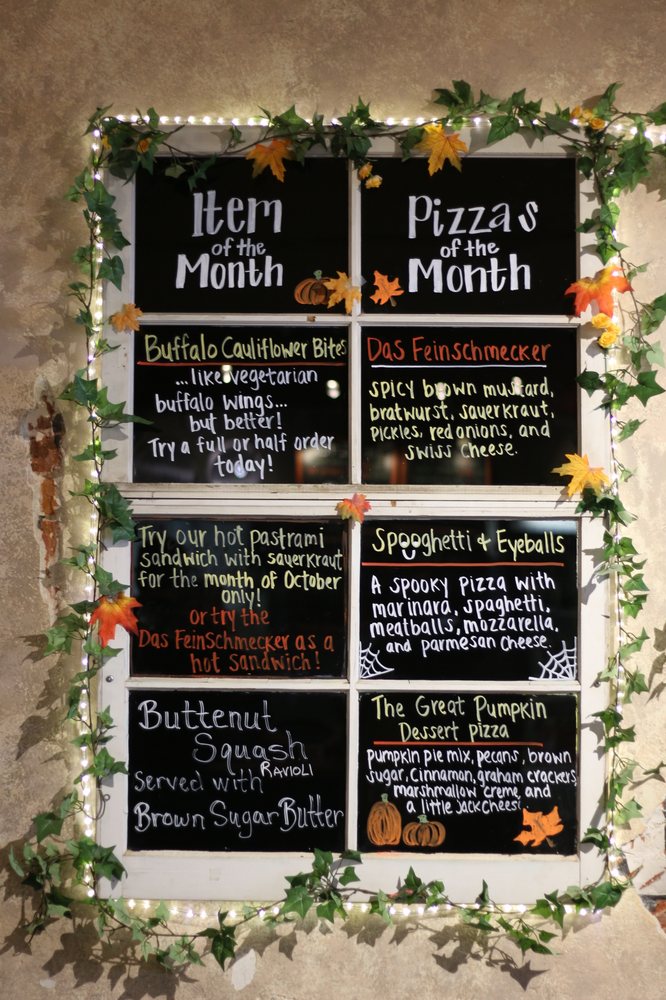 Item
of the
Month
Pizzas
of the
Month
Buffalo Cauliflower Bites
...like vegetarian
buffalo wings...
but better!
Try a full or half order
today!
Das Feinschmecker
spicy brown mustard,
bratwurst, sauerkraut,
pickles, red onions, and
swiss cheese.
Try our hot pastrami
sandwich with sauerkraut
for the month of October
only!
or try the
Das Feinschmecker as a
hot sandwich!
Spooghetti & Eyeballs
A spooky pizza with
marinara, spaghetti,
meatballs, mozzarella,
and parmesan cheese.
Buttenut
Squash
Ravioli
Served with
Brown Sugar Butter
The Great Pumpkin
Dessert Pizza
pumpkin pie mix, pecans, brown
sugar, cinnamon, graham crackers,
marshmallow creme, and
a little jack cheese!